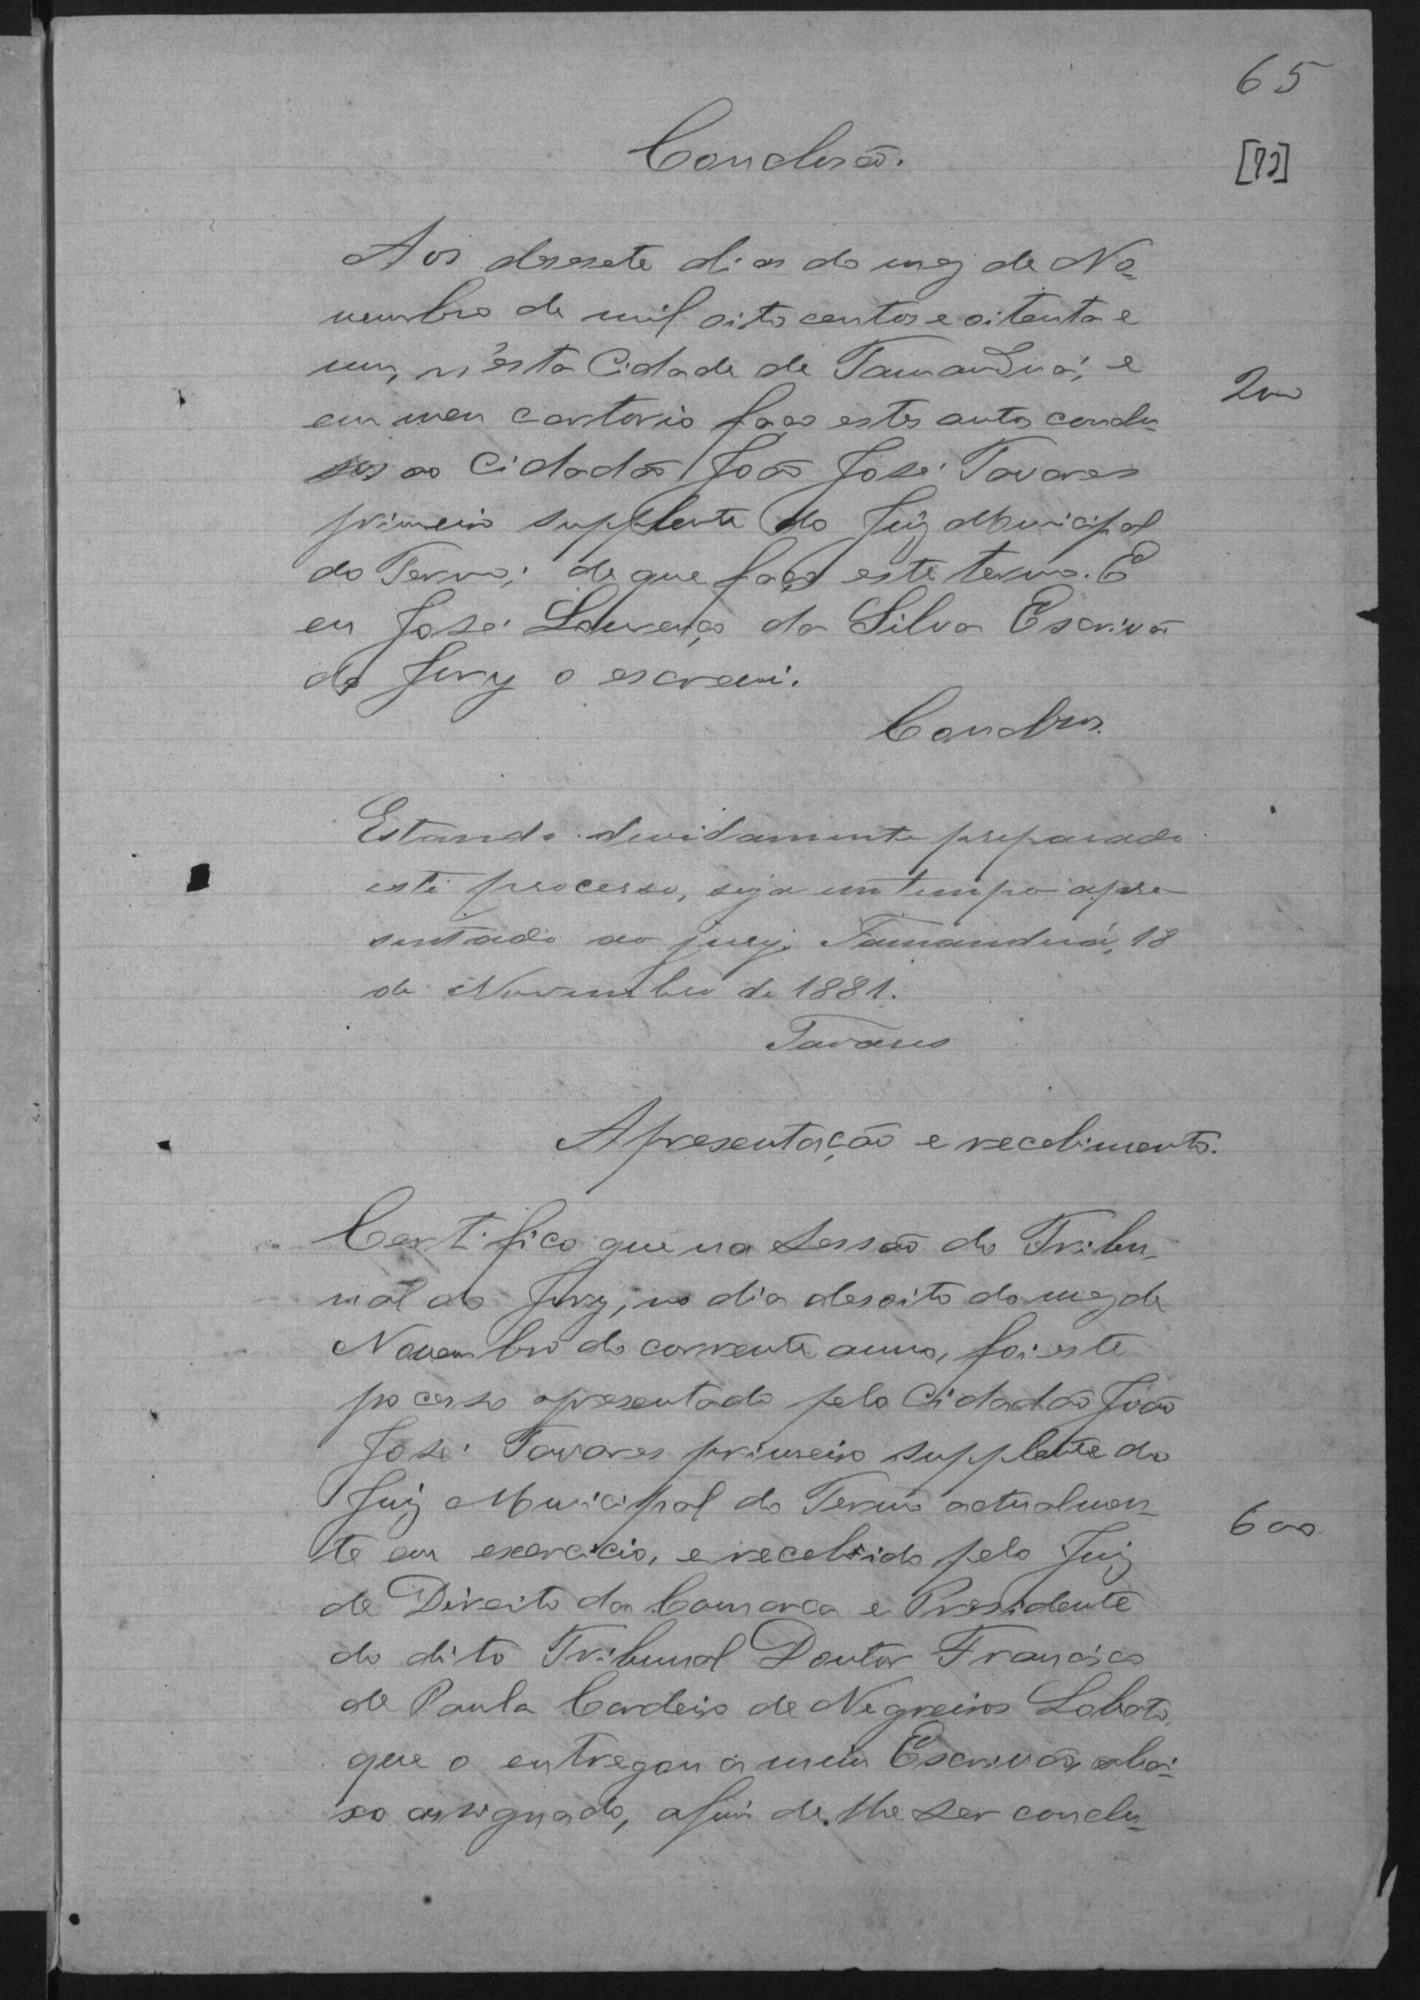 65
[73]
Conclusão.
Aos desesete dias do mez de No-
vembro de mil oito centos e oitenta e
um, n'esta Cidade de Tamanduá, e
em meu cartorio faço estes autos conclu-
sos ao Cidadão João José Tavares
primeiro supplente do Juiz Municipal
do Termo; de que faço este termo. E
eu José Lourenço da Silva Escrivão
do Jury o escrevi.
200
Conclusos.
Estando devidamente preparado
este processo, seja em tempo apre
sentado ao jury. Tamanduá, 18
de Novembro de 1881.
Tavares
Apresentação e recebimento.
Certifico que na Sessão do Tribu-
nal do Jury, no dia desoito do mez de
Novembro do corrente anno, foi este
pocesso apresentado pelo Cidadão João
José Tavares primeiro supplente do
Juiz Municipal do Termo actualmen-
te em exercicio, e recebido pelo Juiz
de Direito da Comarca e Presidente
do dito Tribunal Doutor Francisco
de Paula Cordeiro de Negreiros Lobato,
que o entregou a mim Escrivão abai-
xo assignado, afim de lhe ser conclu-
600